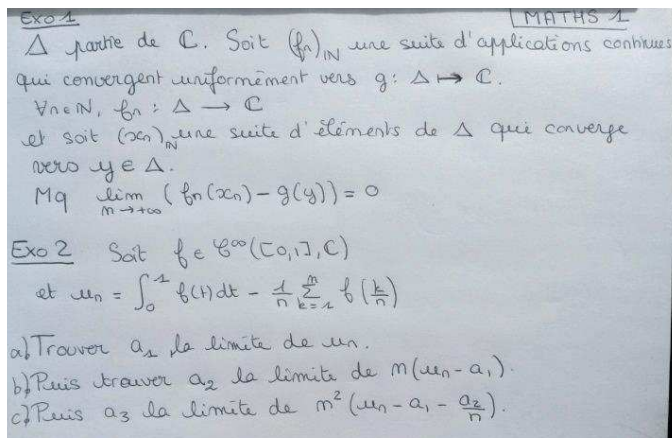 Exo 1
MATHS 1
Δ partie de ℂ. Soit (fn)ℕ une suite d'applications continues
qui convergent uniformément vers g : Δ ↦ ℂ.
∀n∈ℕ, fn : Δ → ℂ
et soit (xn)ℕ une suite d'éléments de Δ qui converge
vers y ∈ Δ.
Mq lim n→+∞ (fn(xn) − g(y)) = 0
Exo 2 Soit f ∈ 𝒞^∞([0,1], ℂ)
et un = ∫₀¹ f(t)dt − 1/n ∑_{k=1}^{n} f(k/n)
a) Trouver a₁ la limite de un.
b) Puis trouver a₂ la limite de n(un − a₁).
c) Puis a₃ la limite de n²(un − a₁ − a₂/n).